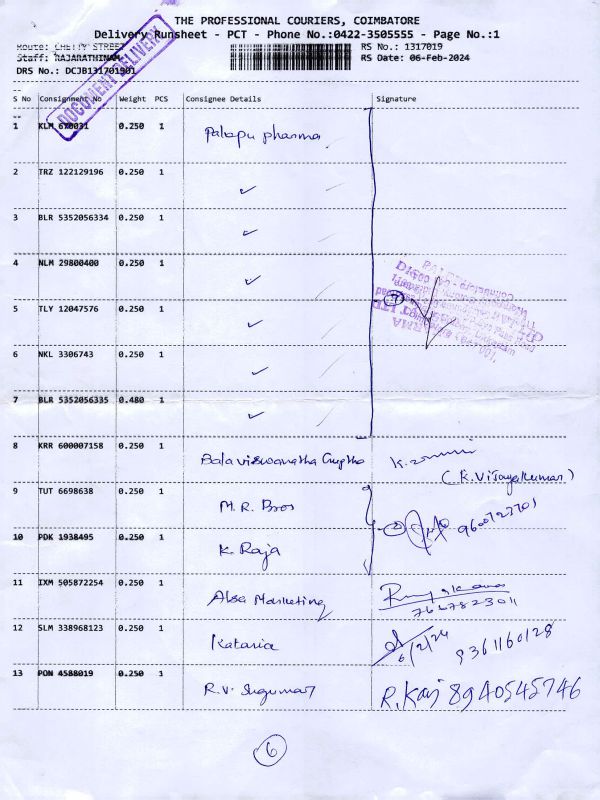 THE PROFESSIONAL COURIERS, COIMBATORE
Delivery Runsheet - PCT - Phone No.:0422-3505555 - Page No.:1
Route: CHETTY STREET
RS No.: 1317019
Staff: RAJARATHINAM
RS Date: 06-Feb-2024
DRS No.: DCJB131701901
DOCUMENT DELIVERY
S No Consignment No Weight PCS Consignee Details Signature
1 KLM 670031 0.250 1 Palepu pharma
2 TRZ 122129196 0.250 1 ✓
3 BLR 5352056334 0.250 1 ✓
4 NLM 29800400 0.250 1 ✓
5 TLY 12047576 0.250 1 ✓
6 NKL 3306743 0.250 1 ✓
7 BLR 5352056335 0.480 1 ✓
7
8 KRR 600007158 0.250 1 Balaviswanatha Guptha
(K.Vijayakumar)
9 TUT 6698638 0.250 1 M.R. Bros
2 9600723701
10 PDK 1938495 0.250 1 K. Raja
11 IXM 505872254 0.250 1 Alsa Marketing
7667823011
12 SLM 338968123 0.250 1 Kataria 6/2/24 9361160128
13 PON 4588019 0.250 1 R.V. Sugumar R.Kaj 8940545746
6